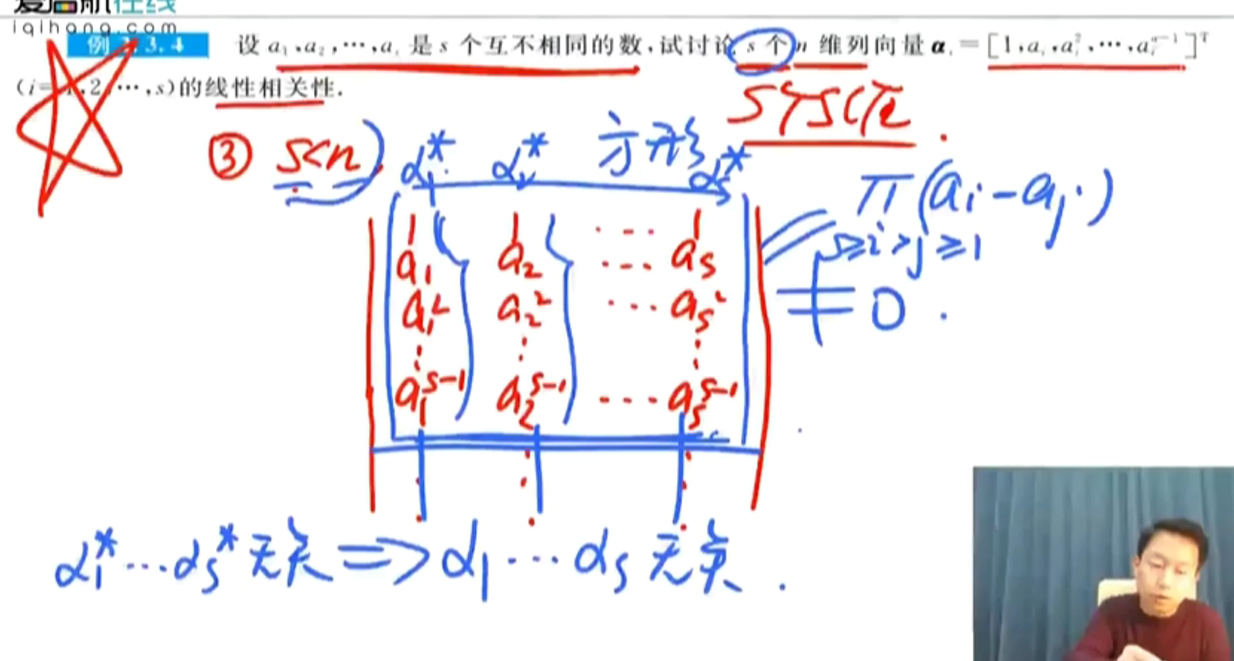 爱启航在线
iqihang.com
例 3.4 设 a₁,a₂,⋯,aₛ 是 s 个互不相同的数,试讨论 s 个 n 维列向量 αᵢ=[1,aᵢ,aᵢ²,⋯,aᵢⁿ⁻¹]ᵀ
(i=1,2,⋯,s)的线性相关性.
③ s<n 方形
α₁* α₂* αₛ*
1 1 ⋯ 1
a₁ a₂ ⋯ aₛ
a₁² a₂² ⋯ aₛ²
⋮ ⋮ ⋮
a₁ˢ⁻¹ a₂ˢ⁻¹ ⋯ aₛˢ⁻¹
∏(aᵢ-aⱼ)
s≥i>j≥1
≠0.
α₁*⋯αₛ*无关⇒α₁⋯αₛ无关.